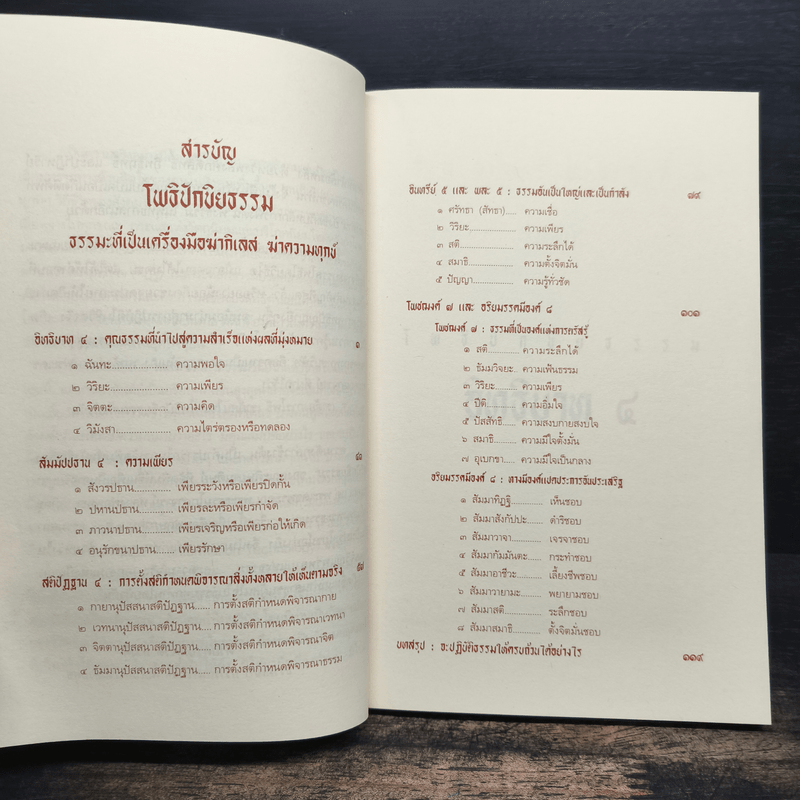 สารบัญ
โพธิปักขิยธรรม
ธรรมะที่เป็นเครื่องมือฆ่ากิเลส ฆ่าความทุกข์
อิทธิบาท ๔ : คุณธรรมที่นำไปสู่ความสำเร็จแห่งผลที่มุ่งหมาย ๑
๑ ฉันทะ............... ความพอใจ
๒ วิริยะ............... ความเพียร
๓ จิตตะ............... ความคิด
๔ วิมังสา............. ความไตร่ตรองหรือทดลอง
สัมมัปปธาน ๔ : ความเพียร
๑ สังวรปธาน............ เพียรระวังหรือเพียรปิดกั้น
๒ ปหานปธาน............ เพียรละหรือเพียรกำจัด
๓ ภาวนาปธาน.......... เพียรเจริญหรือเพียรก่อให้เกิด
๔ อนุรักขนาปธาน...... เพียรรักษา
สติปัฏฐาน ๔ : การตั้งสติกำหนดพิจารณาสิ่งทั้งหลายให้เห็นตามจริง
๑ กายานุปัสสนาสติปัฏฐาน..... การตั้งสติกำหนดพิจารณากาย
๒ เวทนานุปัสสนาสติปัฏฐาน... การตั้งสติกำหนดพิจารณาเวทนา
๓ จิตตานุปัสสนาสติปัฏฐาน.... การตั้งสติกำหนดพิจารณาจิต
๔ ธัมมานุปัสสนาสติปัฏฐาน... การตั้งสติกำหนดพิจารณาธรรม
อินทรีย์ ๕ และ พละ ๕ : ธรรมอันเป็นใหญ่และเป็นกำลัง ๘๙
๑ ศรัทธา (สัทธา).... ความเชื่อ
๒ วิริยะ................. ความเพียร
๓ สติ.................... ความระลึกได้
๔ สมาธิ................. ความตั้งจิตมั่น
๕ ปัญญา............... ความรู้ทั่วชัด
โพชฌงค์ ๗ และ อริยมรรคมีองค์ ๘ ๑๐๑
โพชฌงค์ ๗ : ธรรมที่เป็นองค์แห่งการตรัสรู้
๑ สติ................ ความระลึกได้
๒ ธัมมวิจยะ....... ความเฟ้นธรรม
๓ วิริยะ............. ความเพียร
๔ ปีติ................ ความอิ่มใจ
๕ ปัสสัทธิ......... ความสงบกายสงบใจ
๖ สมาธิ............ ความมีใจตั้งมั่น
๗ อุเบกขา......... ความมีใจเป็นกลาง
อริยมรรคมีองค์ ๘ : ทางมีองค์แปดประการอันประเสริฐ
๑ สัมมาทิฏฐิ.......... เห็นชอบ
๒ สัมมาสังกัปปะ....... ดำริชอบ
๓ สัมมาวาจา.......... เจรจาชอบ
๔ สัมมากัมมันตะ...... กระทำชอบ
๕ สัมมาอาชีวะ........ เลี้ยงชีพชอบ
๖ สัมมาวายามะ....... พยายามชอบ
๗ สัมมาสติ............ ระลึกชอบ
๘ สัมมาสมาธิ......... ตั้งจิตมั่นชอบ
บทสรุป : จะปฏิบัติธรรมให้ครบถ้วนได้อย่างไร ๑๑๙